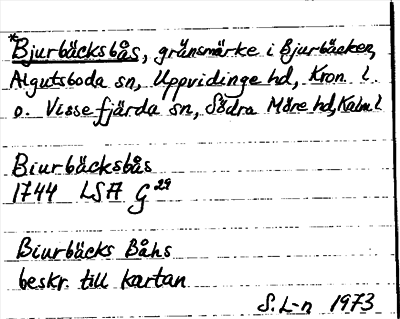 *Bjurbäcksbås, gränsmärke i Bjurbäcken,
Algutsboda sn, Uppvidinge hd, Kron. l.
o. Vissefjärda sn, Södra Möre hd, Kalm. l
Biurbäcksbås
1744 LSA G 29
Biurbäcks Båhs
beskr. till kartan
S. L-n 1973